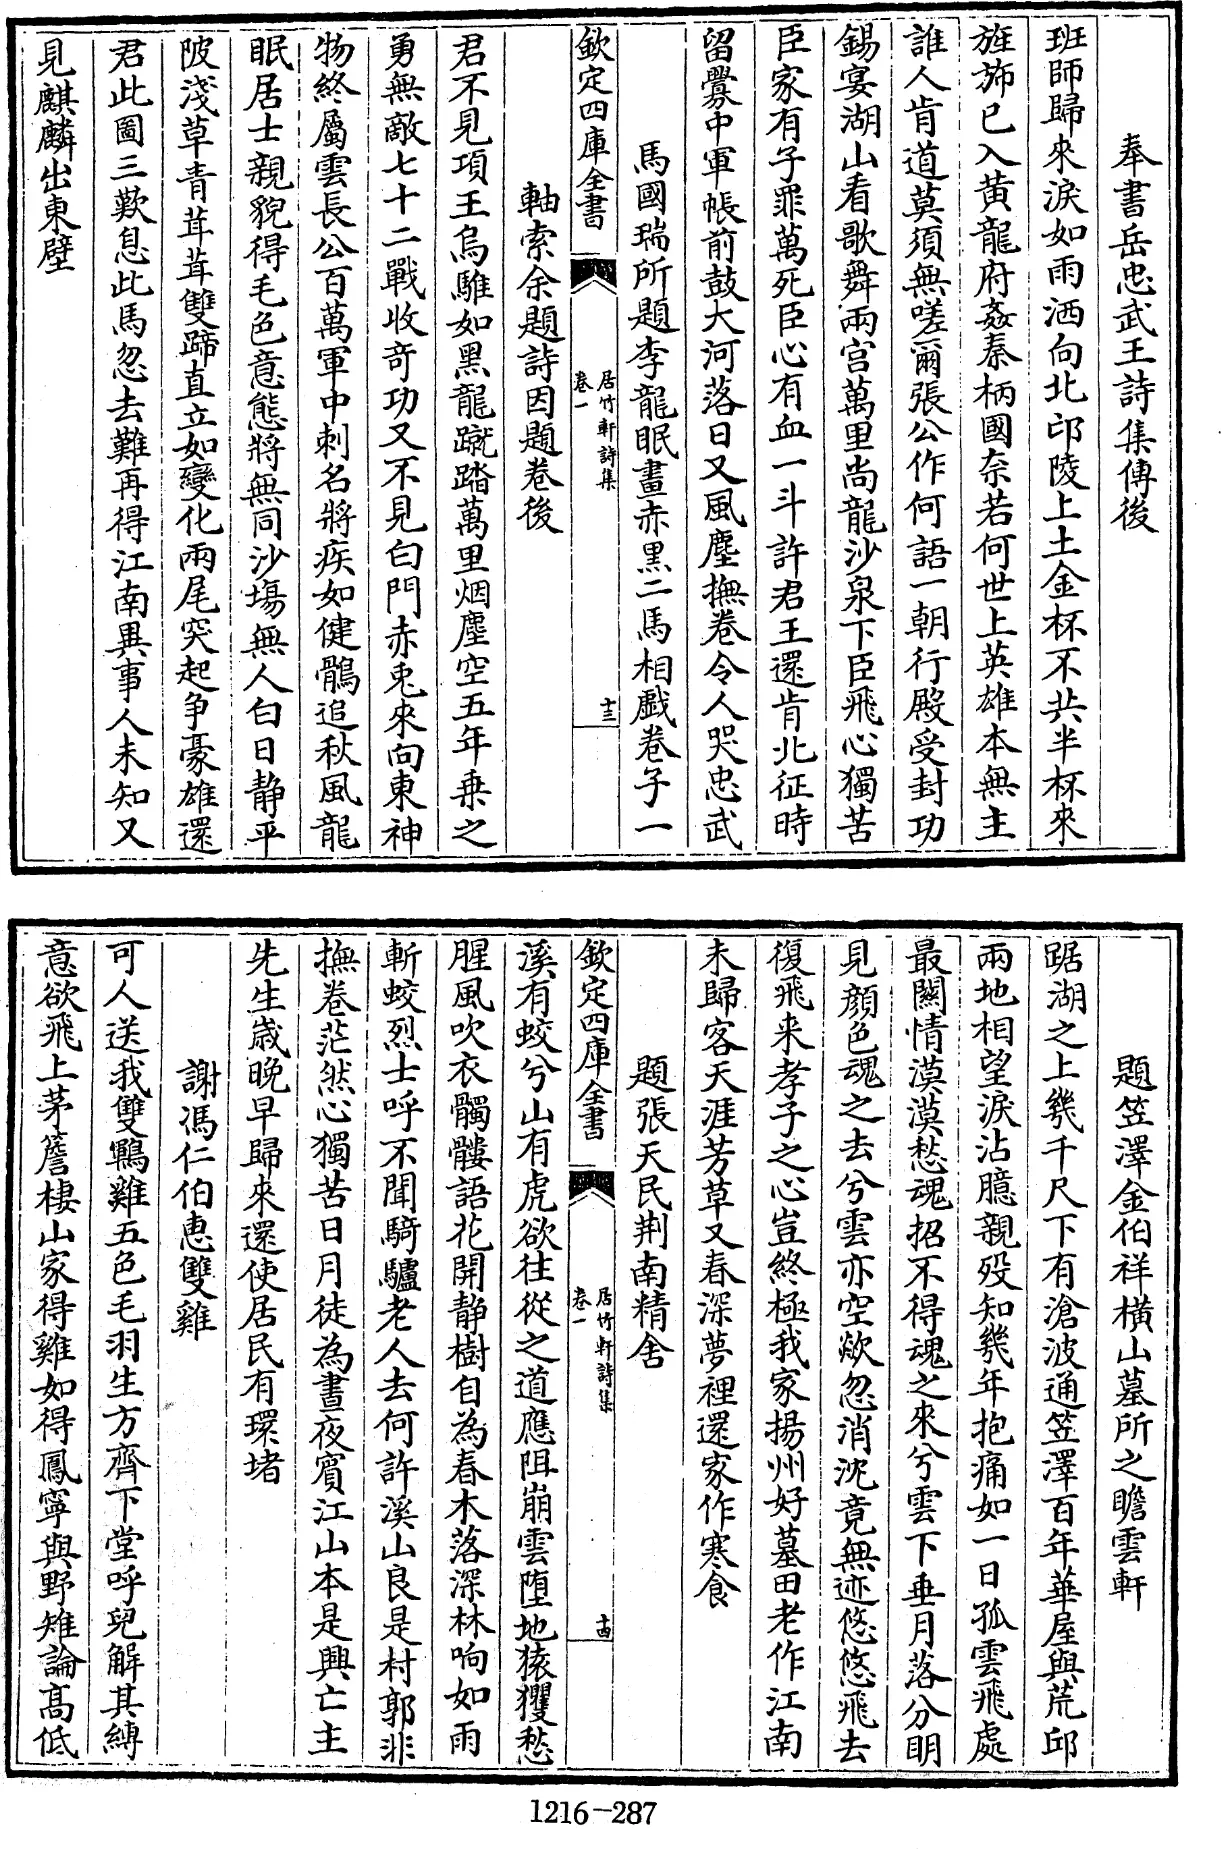 奉書岳忠武王詩集傳後
班師歸來淚如雨洒向北邙陵上土金杯不共半杯來
旌斾已入黃龍府姦秦柄國奈若何世上英雄本無主
誰人肯道莫須無嗟爾張公作何語一朝行殿受封功
錫宴湖山看歌舞兩宮萬里尚龍沙泉下臣飛心獨苦
臣家有子罪萬死臣心有血一斗許君王還肯北征時
留爨中軍帳前鼓大河落日又風塵撫卷令人哭忠武
馬國瑞所題李龍眠畫赤黑二馬相戲卷子一
欽定四庫全書
居竹軒詩集
卷一
十三
軸索余題詩因題卷後
君不見項王烏騅如黑龍蹴踏萬里烟塵空五年乗之
勇無敵七十二戰收竒功又不見白門赤兎來向東神
物終屬雲長公百萬軍中刺名將疾如健鶻追秋風龍
眠居士親貌得毛色意態將無同沙塲無人白日静平
陂淺草青茸茸雙蹄直立如變化兩尾突起争豪雄還
君此圖三歎息此馬忽去難再得江南異事人未知又
見麒麟出東壁
題笠澤金伯祥橫山墓所之瞻雲軒
踞湖之上幾千尺下有滄波通笠澤百年華屋與荒邱
兩地相望淚沾臆親殁知幾年抱痛如一日孤雲飛處
最關情漠漠愁魂招不得魂之來兮雲下垂月落分明
見顏色魂之去兮雲亦空歘忽消沈竟無迹悠悠飛去
復飛来孝子之心豈終極我家揚州好墓田老作江南
未歸客天涯芳草又春深夢裡還家作寒食
題張天民荆南精舍
欽定四庫全書
居竹軒詩集
卷一
十四
溪有蛟兮山有虎欲往從之道應阻崩雲墮地猿玃愁
腥風吹衣髑髏語花開静樹自為春木落深林响如雨
斬蛟烈士呼不聞騎驢老人去何許溪山良是村郭非
撫卷茫然心獨苦日月徒為晝夜賔江山本是興亡主
先生歲晚早歸來還使居民有環堵
謝馮仁伯惠雙雞
可人送我雙鷄雞五色毛羽生方齊下堂呼兒解其縛
意欲飛上茅簷棲山家得雞如得鳳寧與野雉論髙低
1216-287